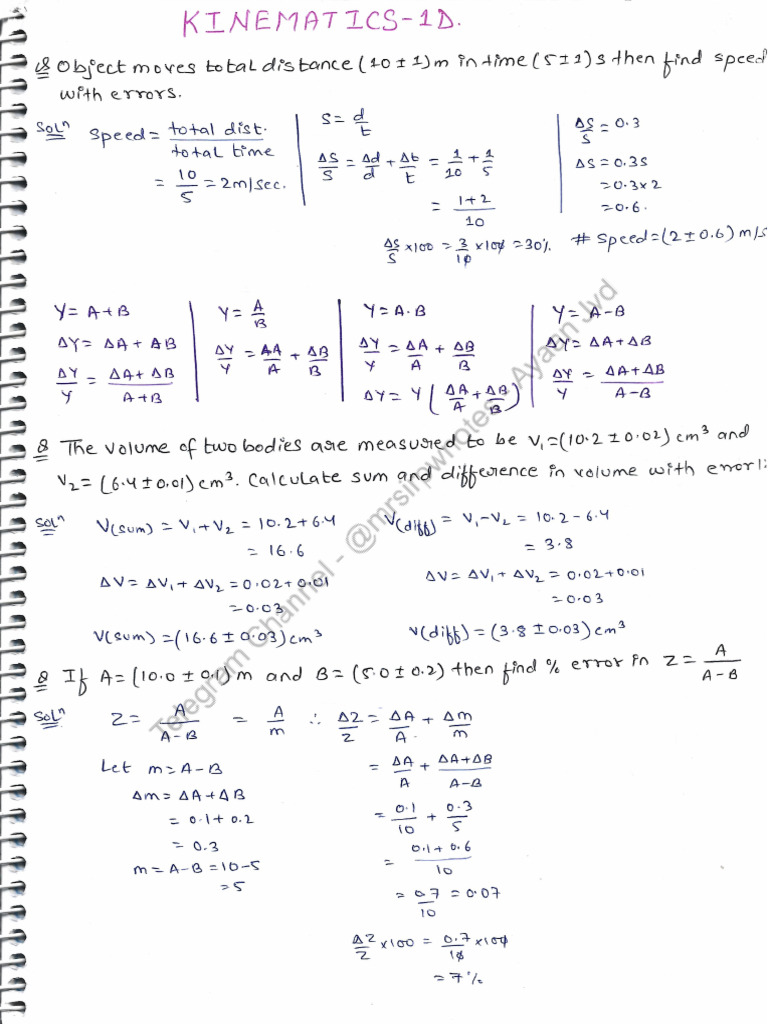 KINEMATICS-1D.
Q Object moves total distance (10 ± 1) m in time (5 ± 1) s then find speed
with errors.
Solⁿ speed = total dist. / total time
= 10/5 = 2 m/sec.
S = d/t
ΔS/S = Δd/d + Δt/t = 1/10 + 1/5
= 1+2/10
ΔS/S × 100 = 3/10 × 100 = 30%.
ΔS/S = 0.3
ΔS = 0.3S
= 0.3 × 2
= 0.6.
# Speed = (2 ± 0.6) m/s
Y = A + B
ΔY = ΔA + ΔB
ΔY/Y = ΔA + ΔB / A + B
Y = A/B
ΔY/Y = ΔA/A + ΔB/B
Y = A.B
ΔY/Y = ΔA/A + ΔB/B
ΔY = Y (ΔA/A + ΔB/B)
Y = A - B
ΔY = ΔA + ΔB
ΔY/Y = ΔA + ΔB / A - B
Q The volume of two bodies are measured to be V₁ = (10.2 ± 0.02) cm³ and
V₂ = (6.4 ± 0.01) cm³. Calculate sum and difference in volume with error
Solⁿ V(sum) = V₁ + V₂ = 10.2 + 6.4
= 16.6
ΔV = ΔV₁ + ΔV₂ = 0.02 + 0.01
= 0.03
V(sum) = (16.6 ± 0.03) cm³
V(diff) = V₁ - V₂ = 10.2 - 6.4
= 3.8
ΔV = ΔV₁ + ΔV₂ = 0.02 + 0.01
= 0.03
V(diff) = (3.8 ± 0.03) cm³
Q If A = (10.0 ± 0.1) m and B = (5.0 ± 0.2) then find % error in Z = A / A-B
Solⁿ Z = A / A-B = A/m ∴ ΔZ/Z = ΔA/A + Δm/m
Let m = A - B
Δm = ΔA + ΔB
= 0.1 + 0.2
= 0.3
m = A - B = 10 - 5
= 5
= ΔA/A + ΔA+ΔB / A-B
= 0.1/10 + 0.3/5
= 0.1 + 0.6 / 10
= 0.7/10 = 0.07
ΔZ/Z × 100 = 0.7/10 × 100
= 7%
Telegram Channel - @mrsirpwnotes - Ayaan Jvd